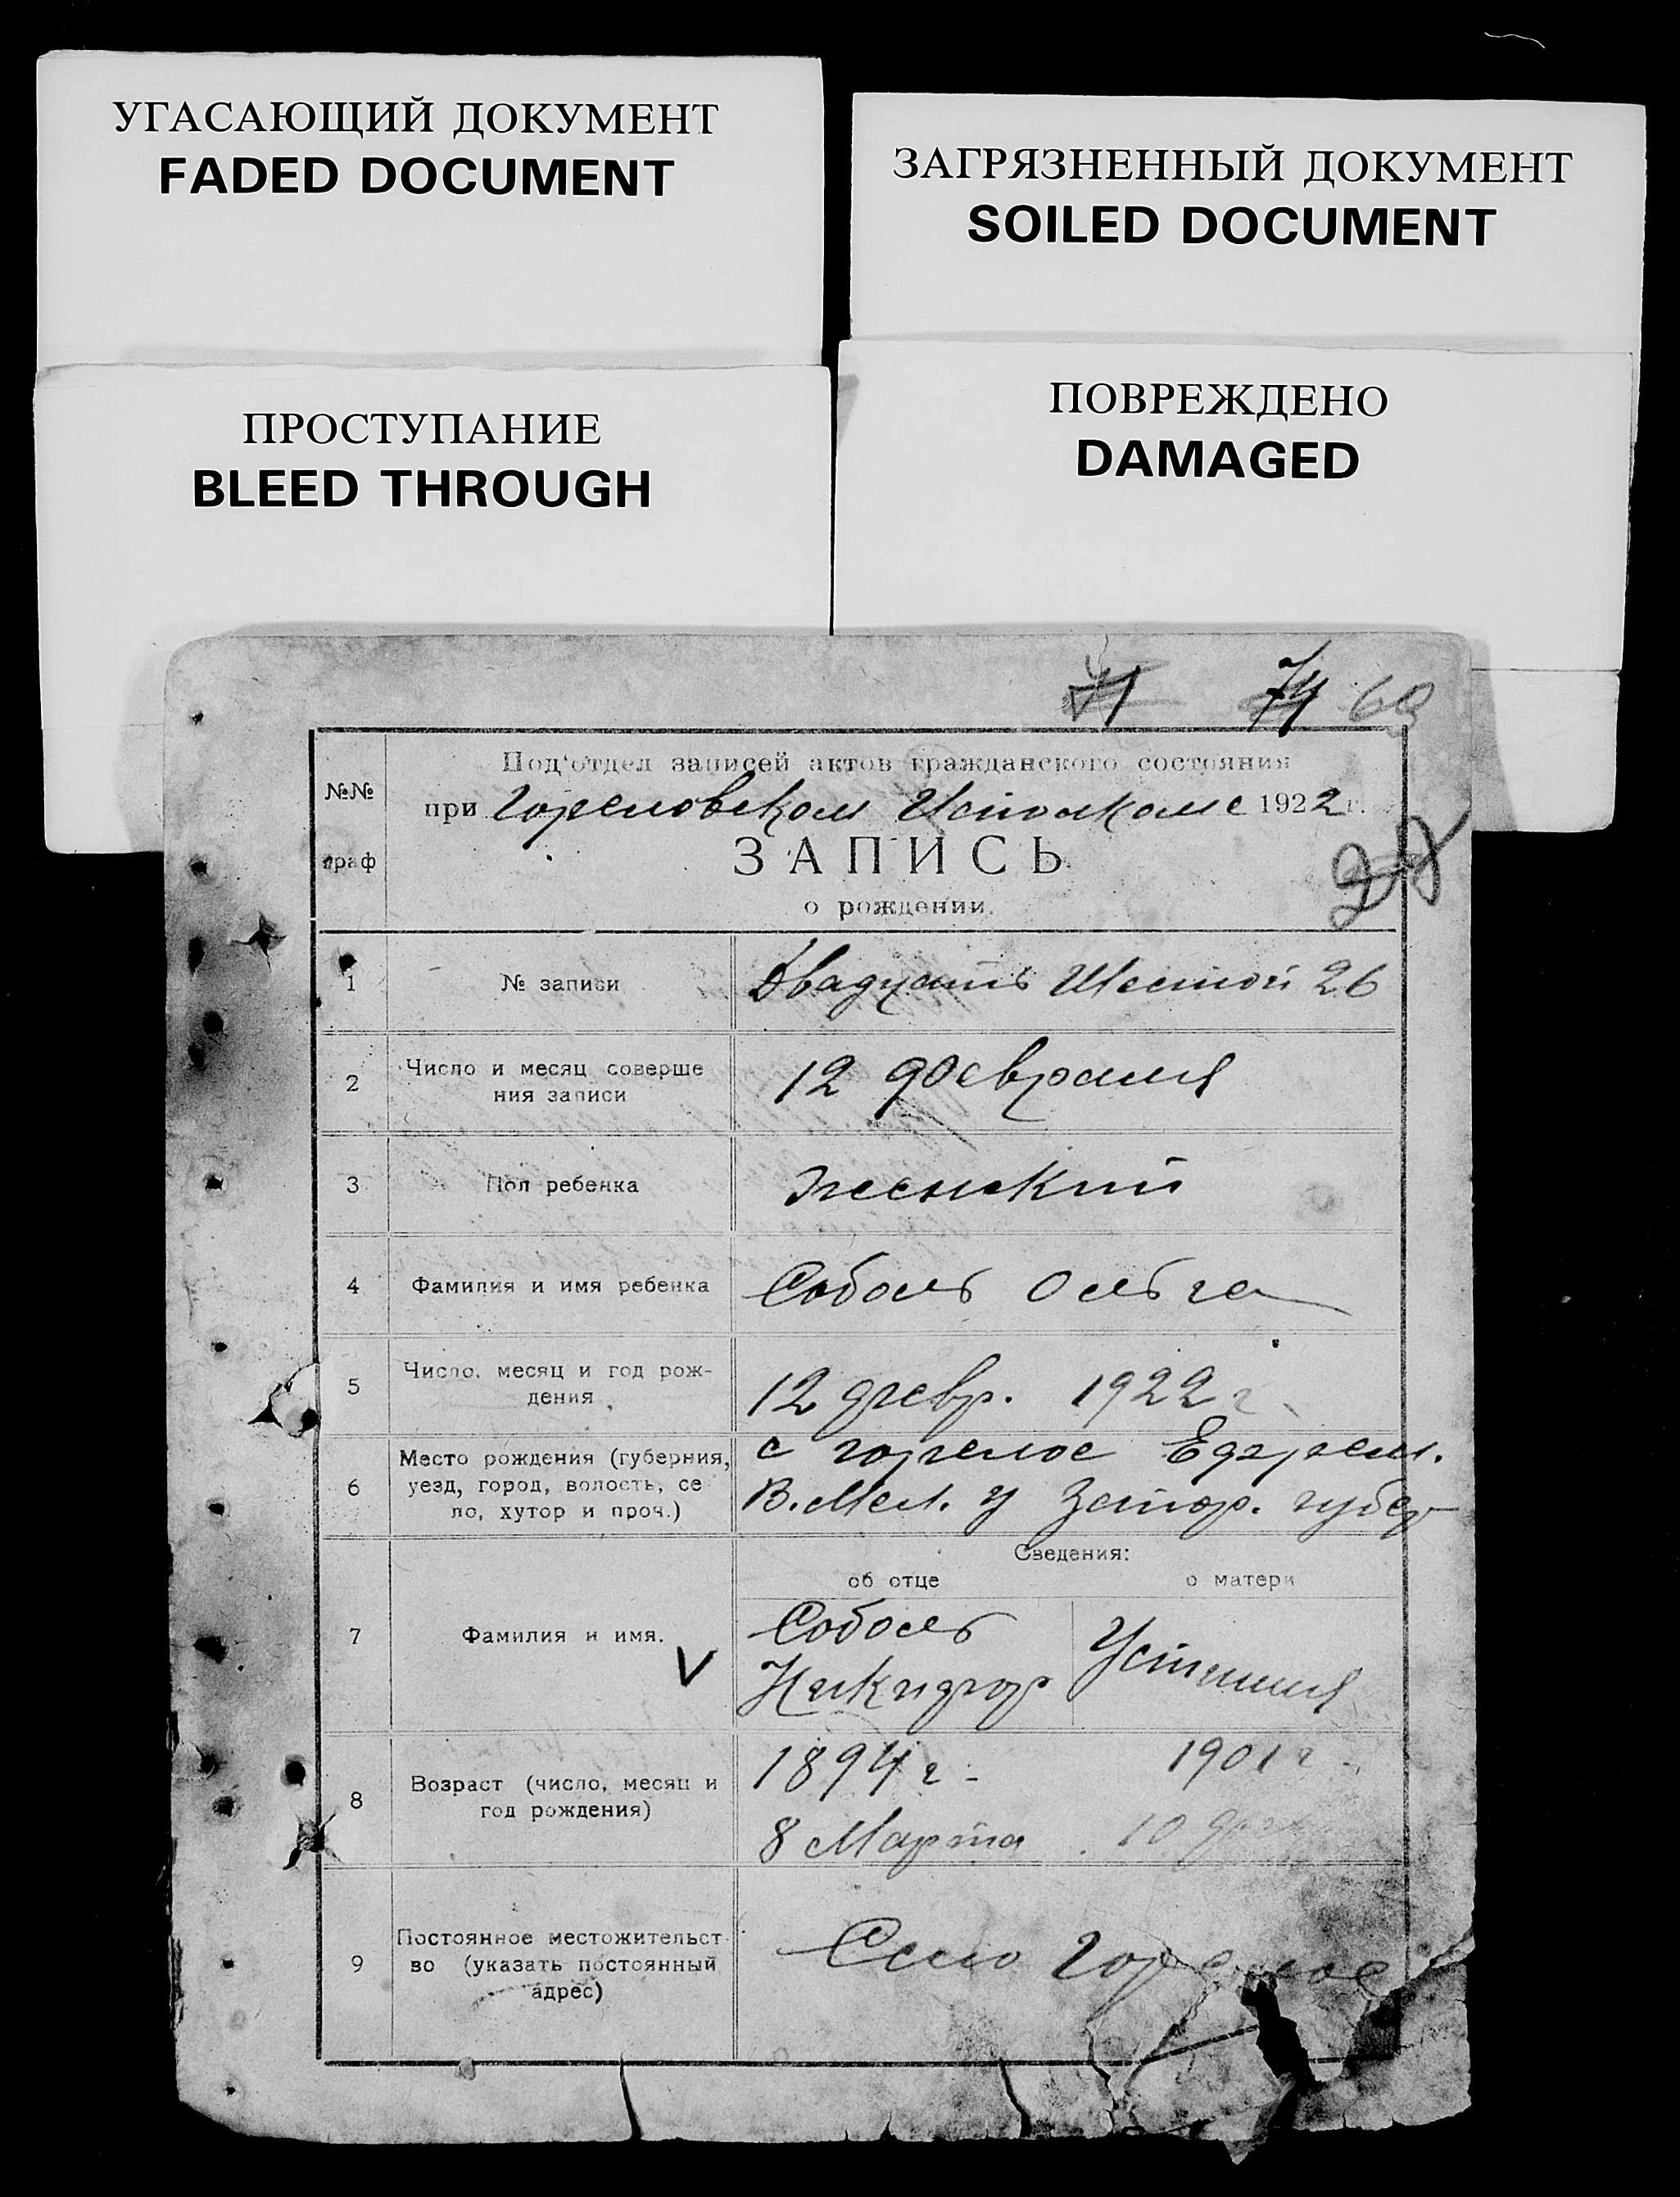 УГАСАЮЩИЙ ДОКУМЕНТ
FADED DOCUMENT
ЗАГРЯЗНЕННЫЙ ДОКУМЕНТ
SOILED DOCUMENT
ПРОСТУПАНИЕ
BLEED THROUGH
ПОВРЕЖДЕНО
DAMAGED
71 74
№№
граф
Под'отдел записей актов гражданского состояния
при Гореловском Исполкоме 1922 г.
ЗАПИСЬ
о рождении.
1 № записи Двадцать Шестой 26
2 Число и месяц соверше
ния записи
12 Февраля
3 Пол ребенка женский
4 Фамилия и имя ребенка Соболь Ольга
5 Число, месяц и год рож-
дения
12 февр. 1922 г.
6 Место рождения (губерния,
уезд, город, волость, се
ло, хутор и проч.)
с горелое Ефрем.
В. Мел. у Запор. губер
Сведения:
об отце о матери
7 Фамилия и имя. V
Соболь
Никифор
Устиния
8 Возраст (число, месяц и
год рождения)
1894 г. 1901 г.
8 Марта 10
9 Постоянное местожительст
во (указать постоянный
адрес)
Село Горелое